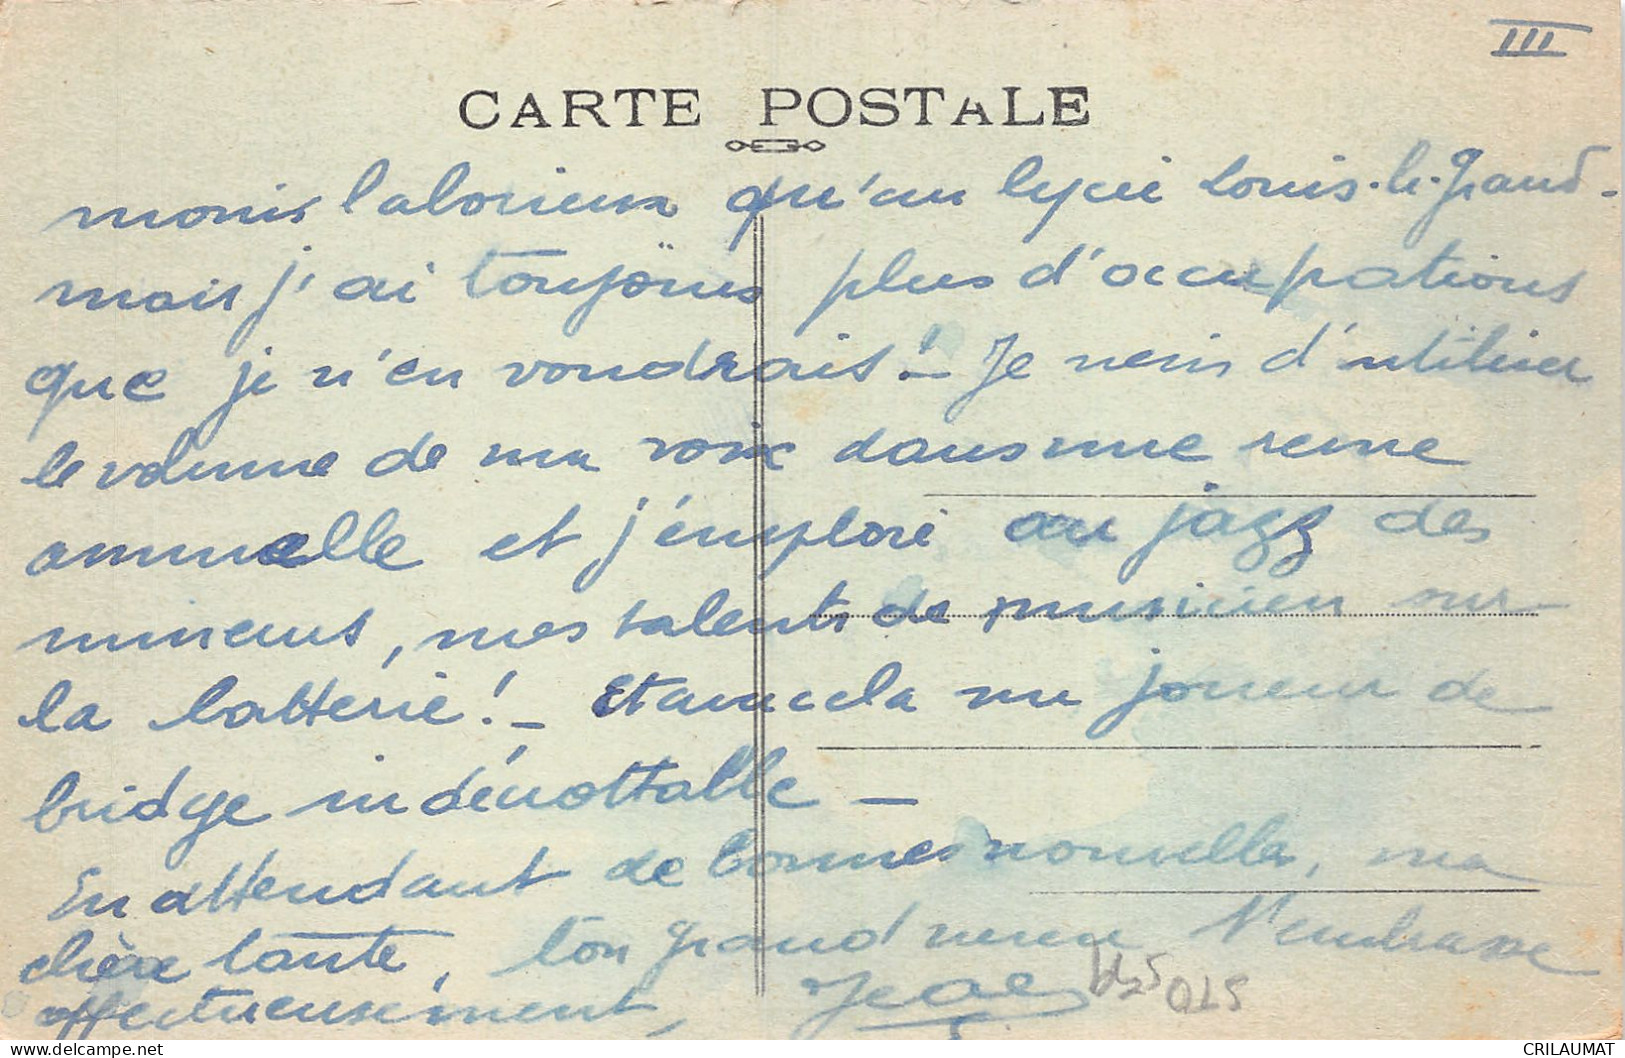 III
CARTE POSTALE
moins laborieux qu'au lycée Louis-le-Grand -
mais j'ai toujours plus d'occupations
que je n'en voudrais ! - Je viens d'utiliser
le volume de ma voix dans une revue
annuelle et j'emploie au jazz des
mineurs, mes talents de musicien sur
la batterie ! - Et avec cela un joueur de
bridge indémottable -
En attendant de bonnes nouvelles, ma
chère tante, ton grand neveu t'embrasse
affectueusement, Jean
015
CRILAUMAT